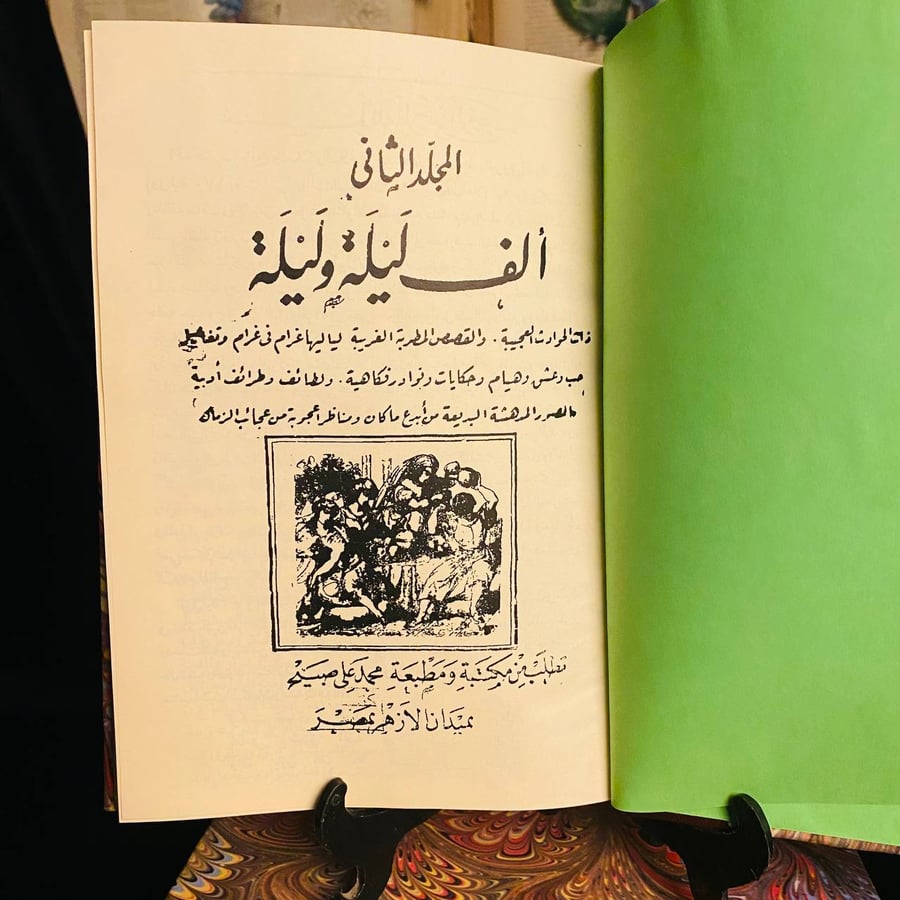 المجلد الثاني
ألف لَيْلَة ولَيْلَة
ذات الحوادث العجيبة. والقصص المطربة الغريبة لياليها غرام فى غرام وتفاصيل
حب وعشق وهيام وحكايات ونوادر فكاهية. ولطائف وطرائف أدبية
بالصور المدهشة البديعة من أبدع ما كان ومناظر أعجوبة من عجائب الزمان
تطلب من مكتبة ومطبعة محمد على صبيح
بميدان الأزهر بمصر